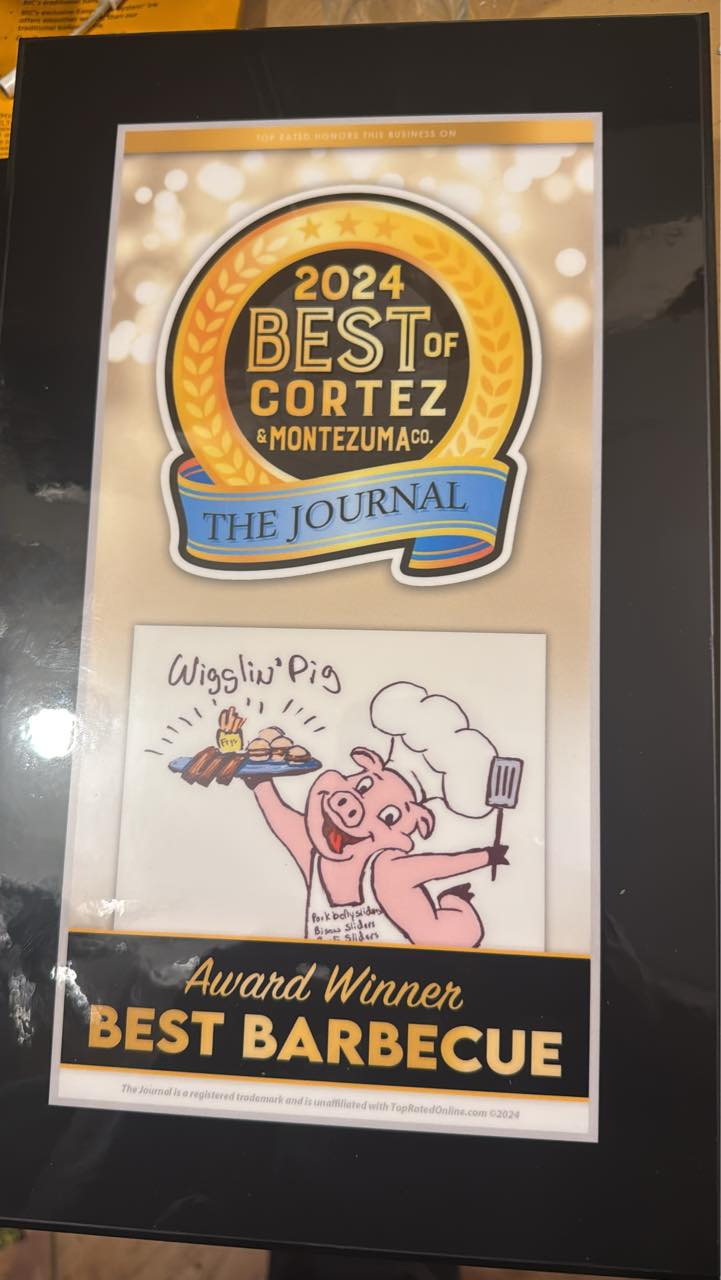 offers smoother
traditional
TOP RATED HONORS THIS BUSINESS ON
2024
BEST OF
CORTEZ
& MONTEZUMA CO.
THE JOURNAL
Wigglin' Pig
Frys
Pork belly sliders
Bison Sliders
Sliders
Award Winner
BEST BARBECUE
The Journal is a registered trademark and is unaffiliated with TopRatedOnline.com ©2024